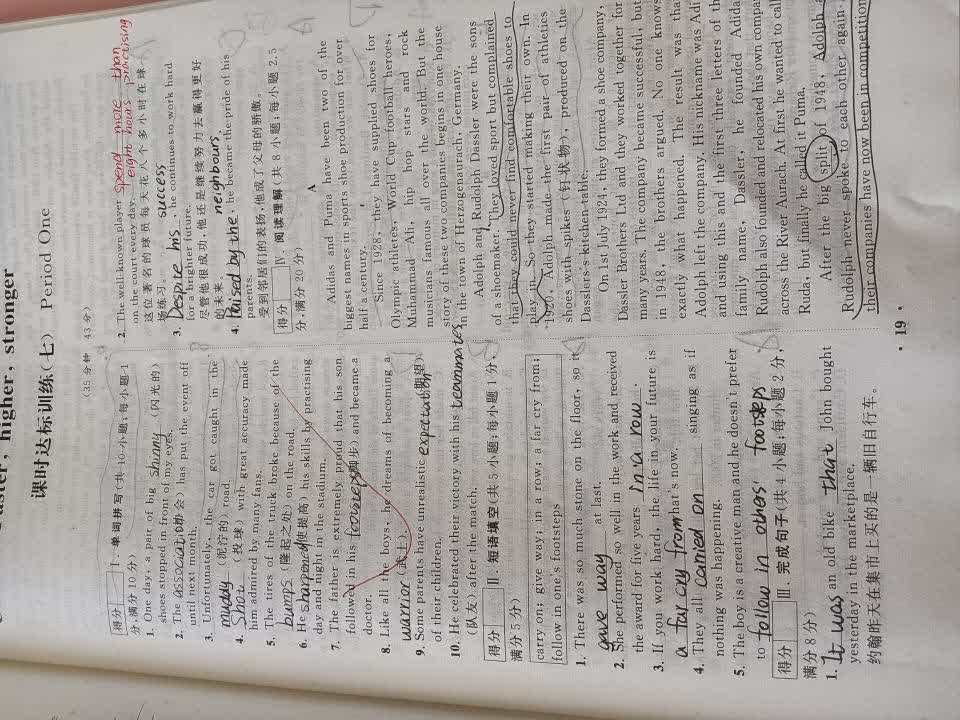 aster, higher, stronger
课时达标训练(七) Period One
(35 分钟 43 分)
得分 Ⅰ. 单词拼写(共 10 小题;每小题 1
分,满分 10 分)
1. One day, a pair of big shinny (闪光的)
shoes stopped in front of my eyes.
2. The association(协会) has put the event off
until next month.
3. Unfortunately, the car got caught in the
muddy (泥泞的) road.
4. Shot (投球) with great accuracy made
him admired by many fans.
5. The tires of the truck broke because of the
bumps (隆起之处) on the road.
6. He sharpened(使提高) his skills by practising
day and night in the stadium.
7. The father is extremely proud that his son
followed in his footsteps(脚步) and became a
doctor.
8. Like all the boys, he dreams of becoming a
warrior (武士).
9. Some parents have unrealistic expectation(期望)
of their children.
10. He celebrated their victory with his teammates
(队友) after the match.
得分 Ⅱ. 短语填空(共 5 小题;每小题 1 分,
满分 5 分)
carry on; give way; in a row; a far cry from;
follow in one's footsteps
1. There was so much stone on the floor, so it
gave way at last.
2. She performed so well in the work and received
the award for five years in a row.
3. If you work hard, the life in your future is
a far cry from what's now.
4. They all carried on singing as if
nothing was happening.
5. The boy is a creative man and he doesn't prefer
to follow in others' footsteps
得分 Ⅲ. 完成句子(共 4 小题;每小题 2 分,
满分 8 分)
1. It was an old bike that John bought
yesterday in the marketplace.
约翰昨天在集市上买的是一辆旧自行车。
2. The well-known player spend more than
eight hours practising
on the court every day.
这位著名的球员每天花八个多小时在球
场练习。
3. Despite his success, he continues to work hard
for a brighter future.
尽管他很成功,他还是继续努力去赢得更好
的未来。
4. Praised by the neighbours, he became the pride of his
parents.
受到邻居们的表扬,他成了父母的骄傲。
得分 Ⅳ. 阅读理解(共 8 小题;每小题 2.5
分,满分 20 分)
A
Adidas and Puma have been two of the
biggest names in sports shoe production for over
half a century.
Since 1928, they have supplied shoes for
Olympic athletes, World Cup football heroes,
Muhammad Ali, hip hop stars and rock
musicians famous all over the world. But the
story of these two companies begins in one house
in the town of Herzogenaurach, Germany.
Adolph and Rudolph Dassler were the sons
of a shoemaker. They loved sport but complained
that they could never find comfortable shoes to
play in. So they started making their own. In
1920, Adolph made the first pair of athletics
shoes with spikes (钉状物), produced on the
Dasslers'kitchen table.
On 1st July 1924, they formed a shoe company,
Dassler Brothers Ltd and they worked together for
many years. The company became successful, but
in 1948, the brothers argued. No one knows
exactly what happened. The result was that
Adolph left the company. His nickname was Adi
and using this and the first three letters of the
family name, Dassler, he founded Adidas.
Rudolph also founded and relocated his own company
across the River Aurach. At first he wanted to call
Ruda, but finally he called it Puma.
After the big split of 1948, Adolph a
Rudolph never spoke to each other again.
their companies have now been in competition
· 19 ·